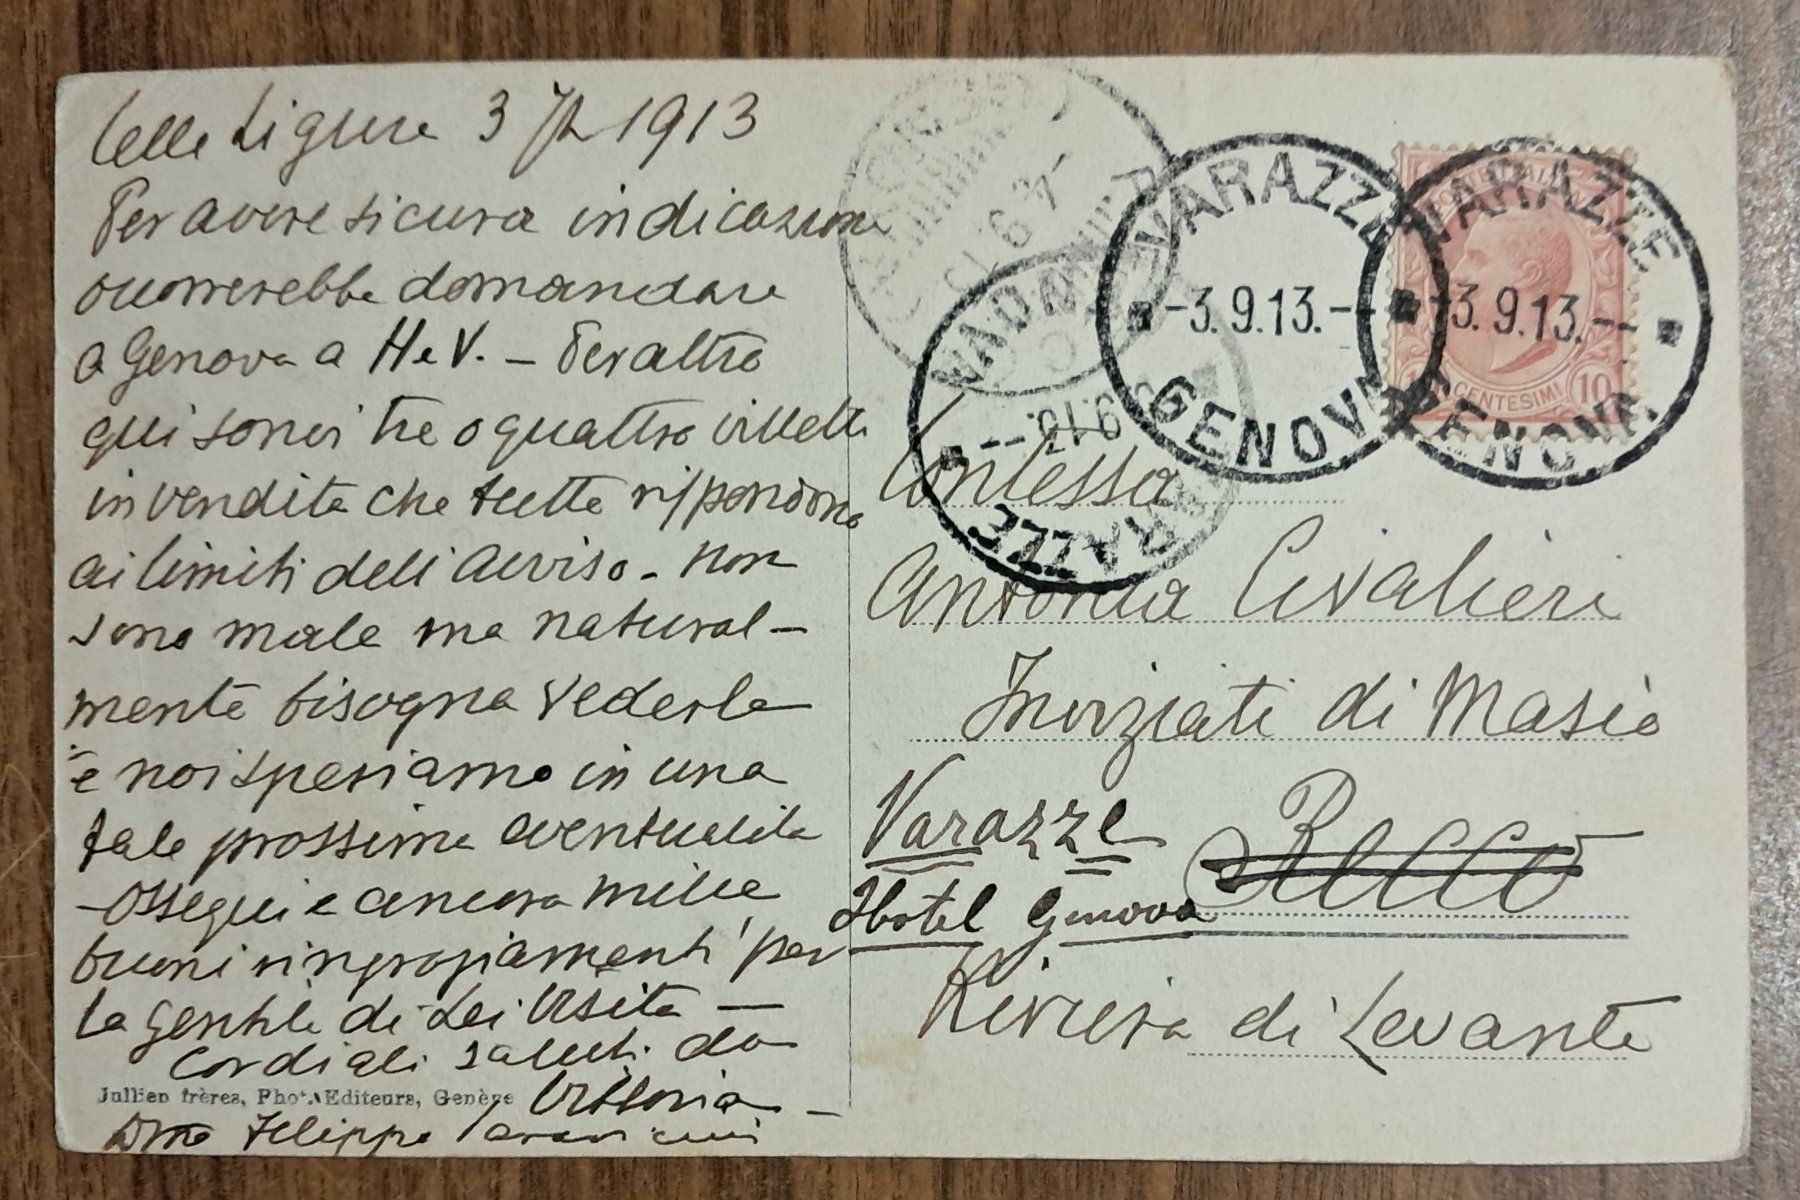 Celle Ligure 3 7bre 1913
Per avere sicura indicazione
occorrerebbe domandare
a Genova a H e V. – Peraltro
qui sonvi tre o quattro villette
in vendita che tutte rispondono
ai limiti dell'avviso – non
sono male ma natural–
mente bisogna vederle
e noi speriamo in una
tale prossima eventualità
– Ossequi e ancora mille
buoni ringraziamenti per
la gentile di Lei visita –
Cordiali saluti da
Vittoria –
Filippo
Jullien frères, Phot. Editeurs, Genève
VARAZZE
-3.9.13.--
GENOVA
VARAZZE
-3.9.13.--
GENOVA
CENTESIMI 10
9.13.--
Contessa
Antonia Civalieri
Inviziati di Masio
Varazze
Recco
Hotel Genova
Riviera di Levante